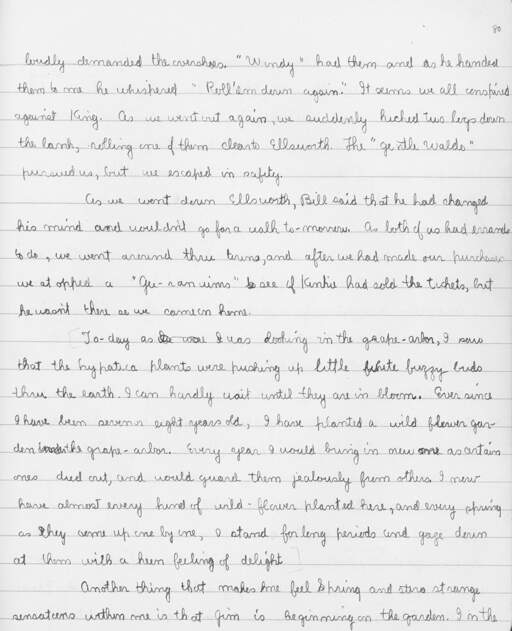 80
loudly demanded the overshoes. "Windy" had them and as he handed
them to me he whispered "Roll 'em down again." It seems we all conspired
against King. As we went out again, we suddenly kicked two logs down
the bank, rolling one of them clear to Ellsworth. The "gentle Waldo"
pursued us, but we escaped in safety.
As we went down Ellsworth, Bill said that he had changed
his mind and wouldn't go for a walk to-morrow. As both of us had errands
to do, we went around thru town, and after we had made our purchases
we stopped a to see if Kinkie had sold the tickets, but
he wasn't there so we came on home.
[To-day as I was looking in the grape-arbor, I saw
that the hypatica plants were pushing up little white fuzzy buds
thru the earth. I can hardly wait until they are in bloom. Ever since
I have been seven or eight years old, I have planted a wild flower gar-
den the grape-arbor. Every year I would bring in new one as certain
ones died out, and would guard them jealously from others. I now
have almost every kind of wild-flower planted here, and every spring
as they come up one by one, I stand for long periods and gaze down
at them with a keen feeling of delight]
Another thing that makes me feel Spring and stirs strange
sensations within me is that Jim is beginning on the garden. In the